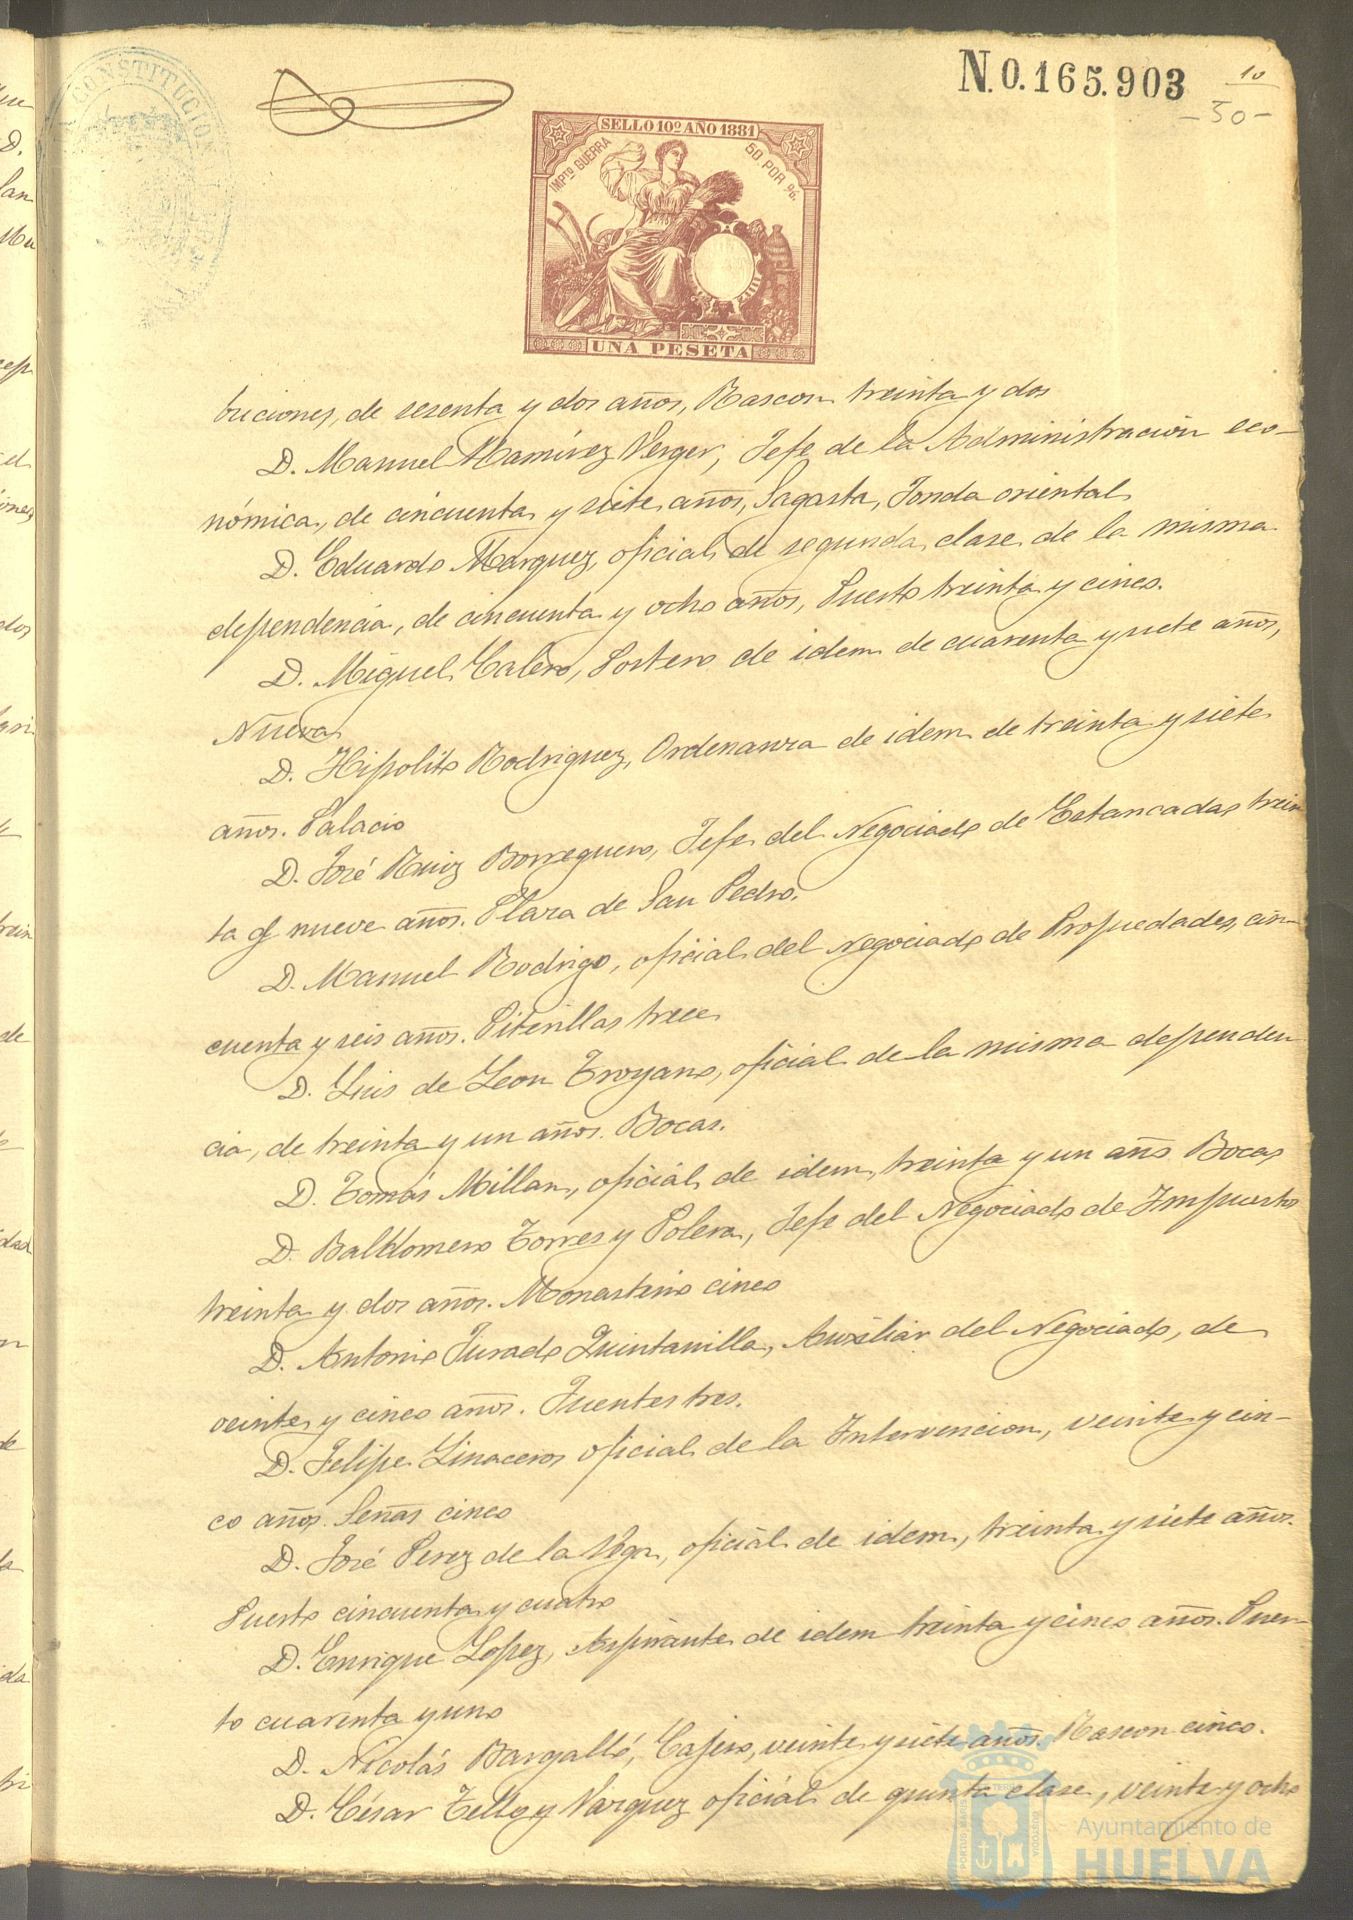 CONSTITUCION
N.0.165.903
10
-50-
SELLO 10º AÑO 1881
IMPTO GUERRA
50 POR %.
UNA PESETA
buciones, de sesenta y dos años, Rascon treinta y dos
D. Manuel Ramírez Verger, Jefe de la Administracion eco-
nómica, de cincuenta y siete años, Sagasta, Fonda oriental
D. Eduardo Marquez, oficial de segunda clase de la misma
dependencia, de cincuenta y ocho años, Puerto treinta y cinco.
D. Miguel Calero, Portero de idem de cuarenta y siete años,
Nueva
D. Hipolito Rodriguez, Ordenanza de idem de treinta y siete
años. Palacio
D. José Ruiz Borreguero, Jefe del Negociado de Estancadas trein
ta y nueve años. Plaza de San Pedro.
D. Manuel Rodrigo, oficial del Negociado de Propiedades, cin-
cuenta y seis años. Piterillas trece
D. Luis de Leon Troyano, oficial de la misma dependen
cia, de treinta y un años. Bocas.
D. Tomás Millan, oficial de idem, treinta y un años Bocas
D. Baldomero Torres y , Jefe del Negociado de Impuestos
treinta y dos años. Monasterio cinco
D. Antonio Jurado Quintanilla, Auxiliar del Negociado, de
veinte y cinco años. Fuentes tres.
D. Felipe Linaceros oficial de la Intervencion, veinte y cin-
co años. Señas cinco
D. José Perez de la Vega, oficial de idem, treinta y siete años.
Puerto cincuenta y cuatro
D. Enrique Lopez, Aspirante de idem treinta y cinco años. Puer-
to cuarenta y uno
D. Nicolás Bargalló, Cajero, veinte y siete años. Rascon cinco.
D. César Tello y Vazquez oficial de quinta clase, veinte y ocho
Ayuntamiento de
HUELVA